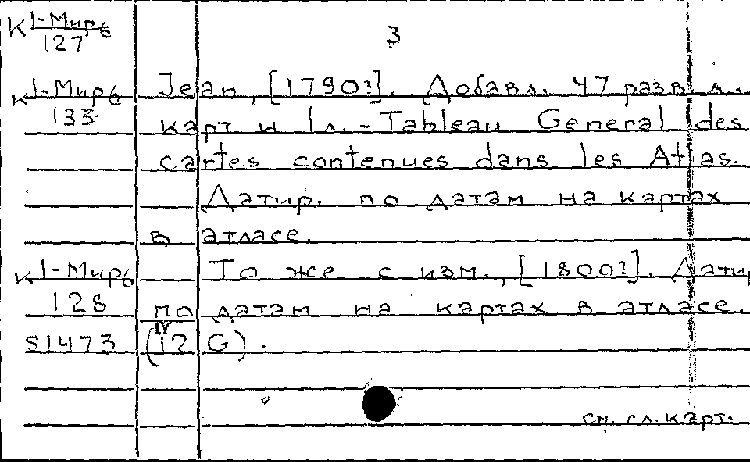 К 1-Мир6
127
3
К 1-Мир6 Jean, [1790?]. Добавл. 47 разв. л.
133 карт и 1 л. - Tableau General des
cartes contenues dans les Atlas.
Датир. по датам на картах
в атласе.
К 1-Мир6 То же с изм., [1800?]. Датир
128 по датам на картах в атласе.
S1473 (IV 12 G).
см. сл. карт.